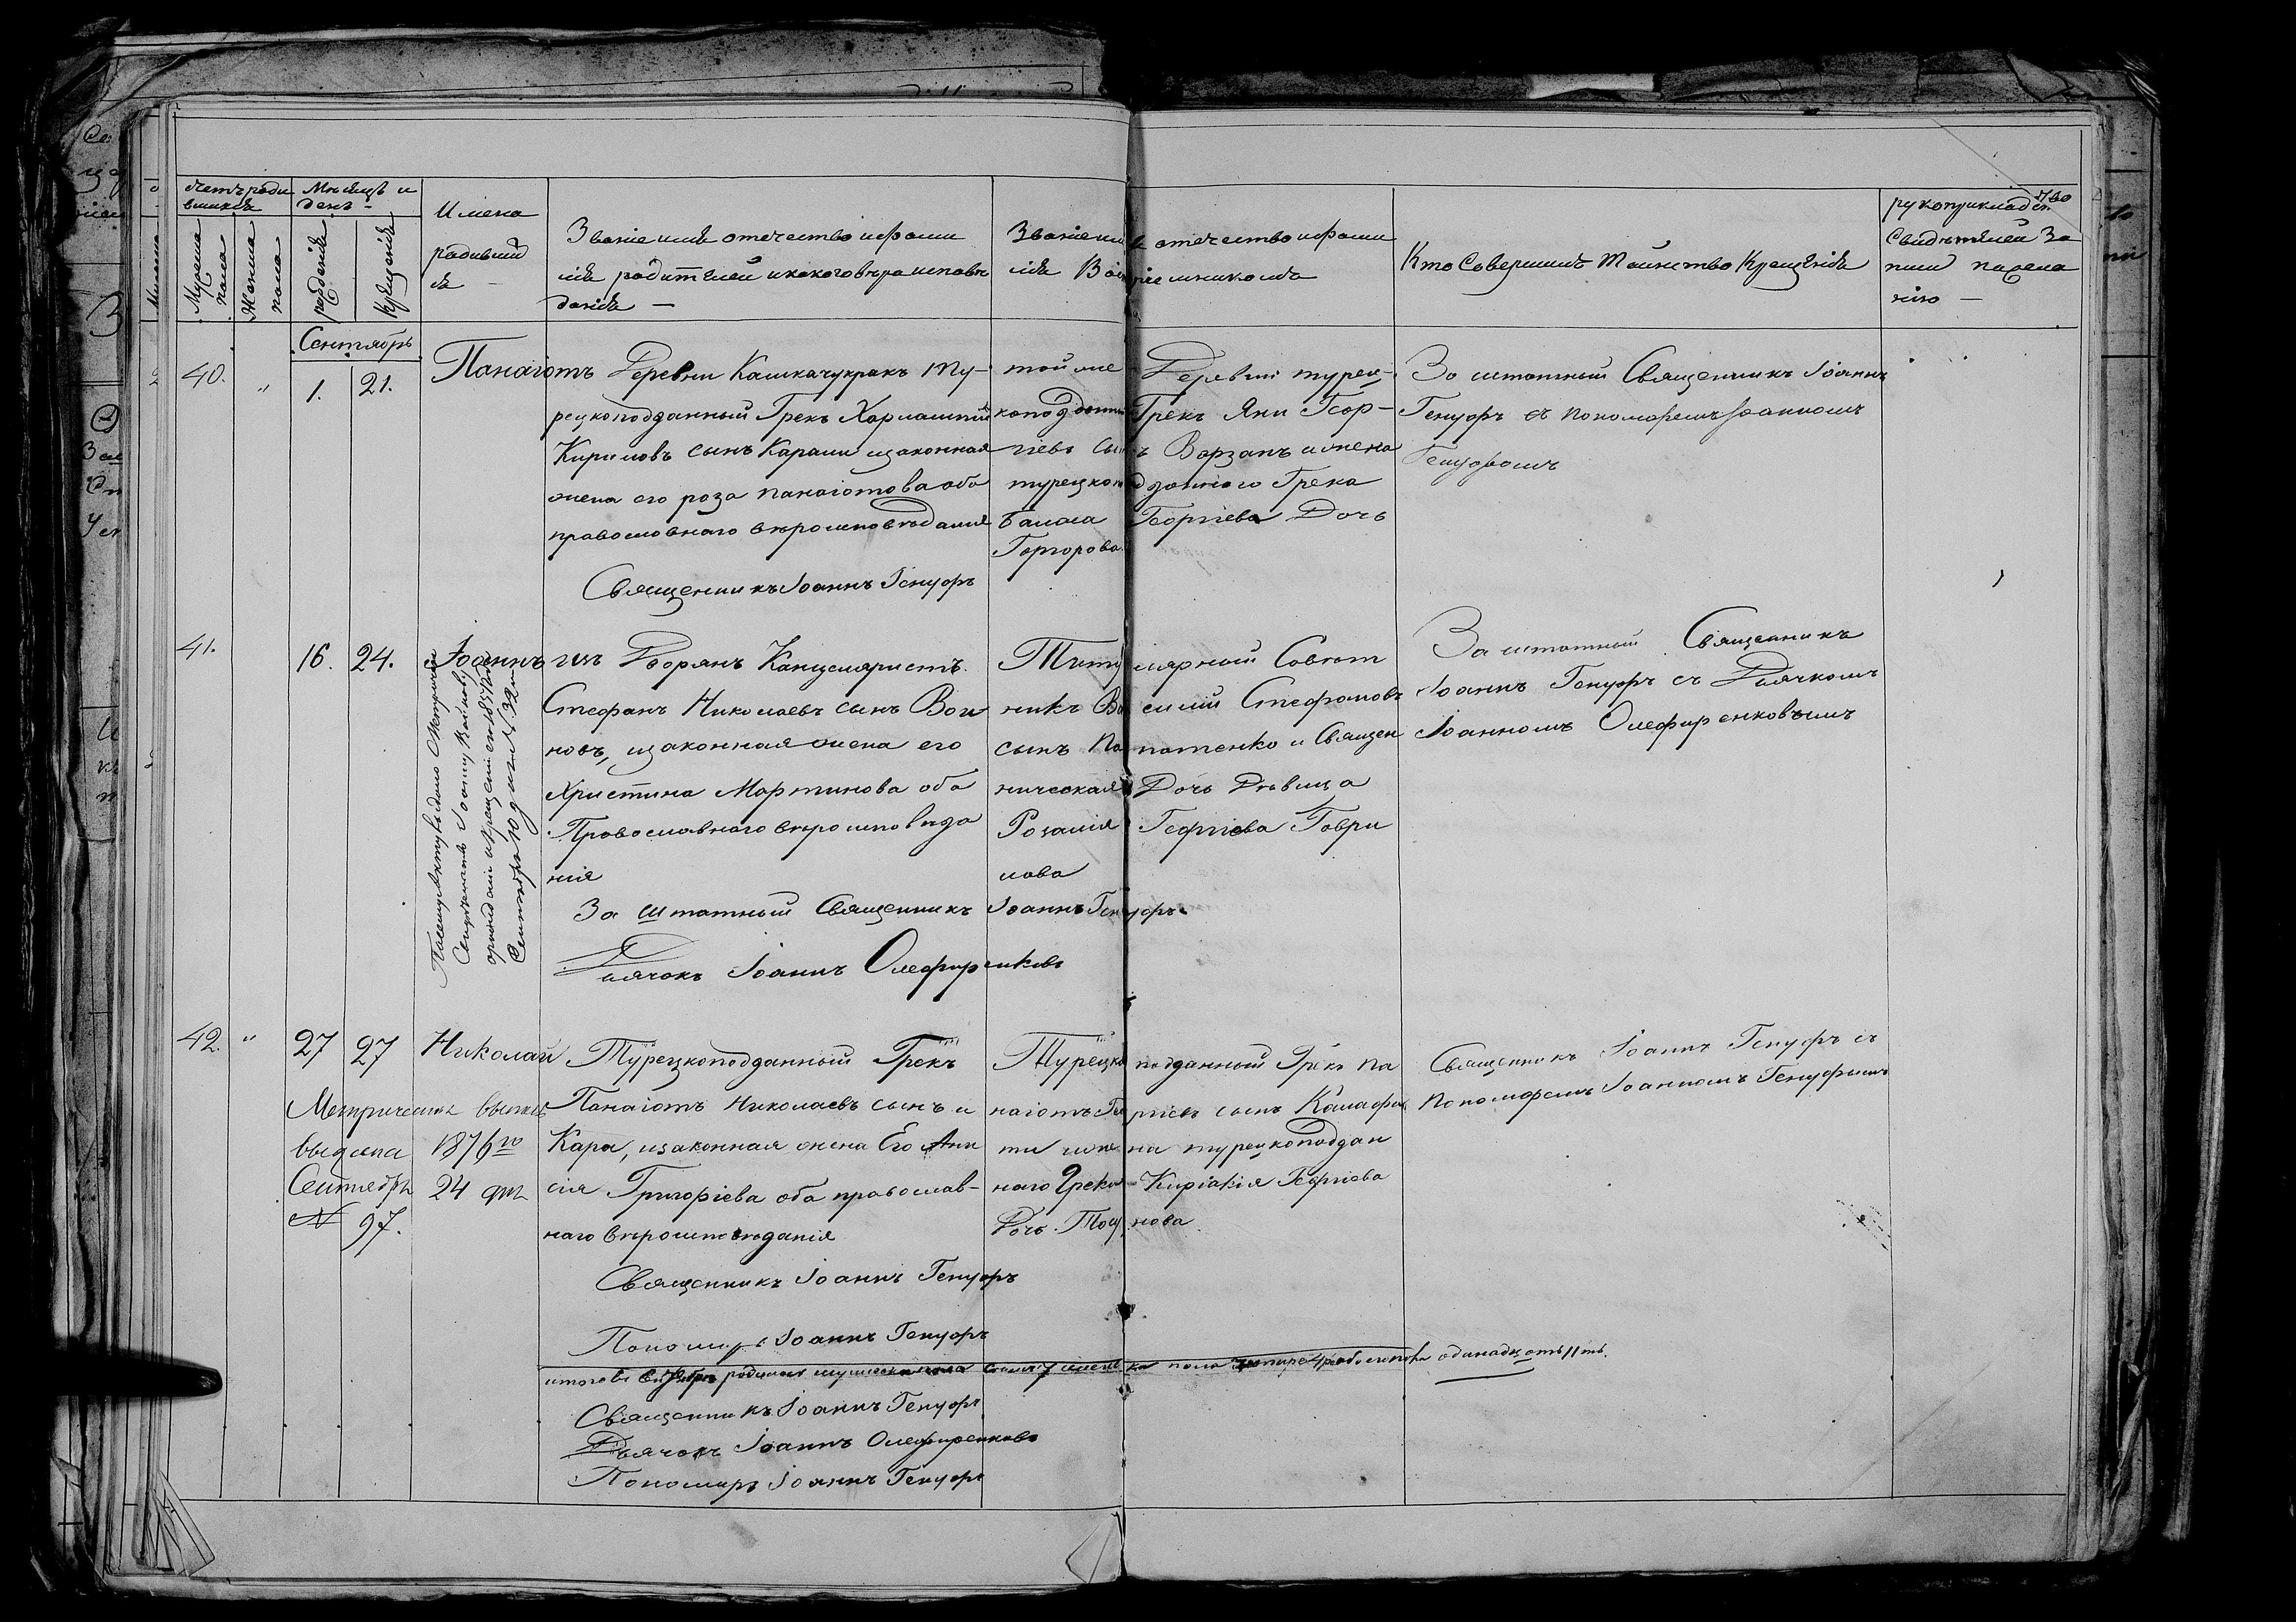 Счетъ роди
вшихся
Мѣсяцъ и
день
Имена
родивший
ся
Мужеска
пола
Женска
пола
рожденія
Крещенія
Званіе имя отечество и фами
лія родителей и какого вѣроисповѣ
данія
Званіе имя отечество и фами
лія Воспріемниковъ
Кто Совершилъ Таинство Крещенія
рукоприкладство
Свидѣтелей За
писи по жела
нію
Сентябрь
40.
1.
21.
Панаіотъ
Деревни Кашкачукракъ Ту-
рецкоподданный Грекъ Харлампій
Кириловъ сынъ Карали и законная
жена его роза панаіотова оба
православнаго вѣроисповѣданія
Священникъ Іоаннъ Генцоръ
той же Деревни турец-
коподданный Грекъ Яни Геор-
гіевъ сынъ Варзанъ и жена
турецкоподданнаго Грека
Баласа Георгіева Дочь
Горгорова
За штатный Священникъ Іоаннъ
Генцоръ съ пономаремъ Іоанномъ
Генцоромъ
41.
16.
24.
Іоаннъ
изъ Дворянъ Канцеляристъ
Стефанъ Николаевъ сынъ Вои
новъ, и законная жена его
Христина Мартинова оба
Православнаго вѣроисповѣда
нія
За штатный Священникъ Іоаннъ Генцоръ
Дьячокъ Іоаннъ Олефиренковъ
Титулярный Совѣт
никъ Василій Стефановъ
сынъ Папатенко и Священ
ническая Дочь Дѣвица
Розалія Георгіева Гаври
лова
За штатный Священникъ
Іоаннъ Генцоръ съ Дьячкомъ
Іоанномъ Олефиренковымъ
42.
27
27
Николай
Метрическая выпись
выдана 1876го
Сентября 24 дня
№ 97.
Турецкоподданный Грекъ
Панаіотъ Николаевъ сынъ и
Кара, и законная жена Его Ани
сія Григоріева оба православ-
наго вѣроисповѣданія
Священникъ Іоаннъ Генцоръ
Пономарь Іоаннъ Генцоръ
Турецкоподданный Грекъ Па
наіотъ Георгіевъ сынъ Калафа
ти и жена турецкоподдан
наго Грека Киріакія Георгіева
Дочь
Священникъ Іоаннъ Генцоръ съ
Пономаремъ Іоанномъ Генцорымъ
итого въ Сентябрѣ родилось мужеска пола семь 7 женска пола четыре 4 обоего пола одинадцать 11ть.
Священникъ Іоаннъ Генцоръ
Дьячокъ Іоаннъ Олефиренковъ
Пономарь Іоаннъ Генцоръ